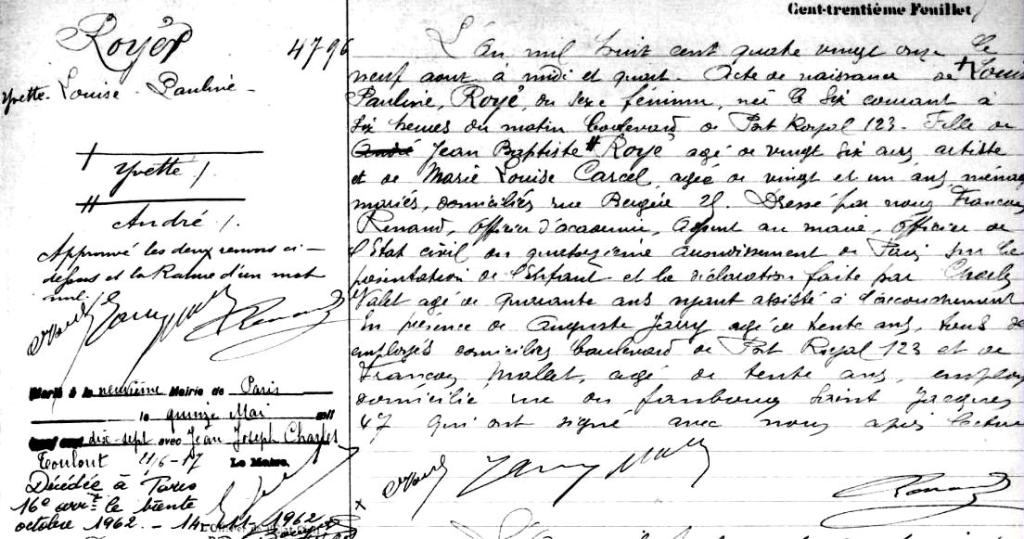 Cent-trentième Feuillet
Royé
4796
Yvette Louise Pauline
Yvette /.
André /.
Approuvé les deux renvois ci-
dessus et la Rature d'un mot
nul /.
Marié à la neuvième Mairie de Paris
le quinze Mai
dix-sept avec Jean Joseph Charles
Toulout 11/6-17 Le Maire,
Décédée à Paris
16e arrt le trente
octobre 1962. - 1962
L'An mil huit cent quatre vingt onze le
neuf aout à midi et quart. Acte de naissance de Louise
Pauline, Royé, du sexe féminin, née le six courant à
six heures du matin boulevard de Port Royal 123. Fille de
André Jean Baptiste Royé agé de vingt six ans artiste
et de Marie Louise Carcel, agée de vingt et un ans, ménag
mariés, domiciliés rue Bergère 25. Dressé par nous François
Renaud, officier d'académie, adjoint au maire, officier de
l'Etat civil du quatorzième arrondissement de Paris sur la
présentation de l'Enfant et la déclaration faite par Charles
Valet agé de quarante ans ayant assisté à l'accouchement
En présence de Auguste Jamy agé de trente ans, tous deux
employés domiciliés boulevard de Port Royal 123 et de
François Malet, agé de trente ans, employé
domicilié rue du faubourg Saint Jacques
47 qui ont signé avec nous après lecture